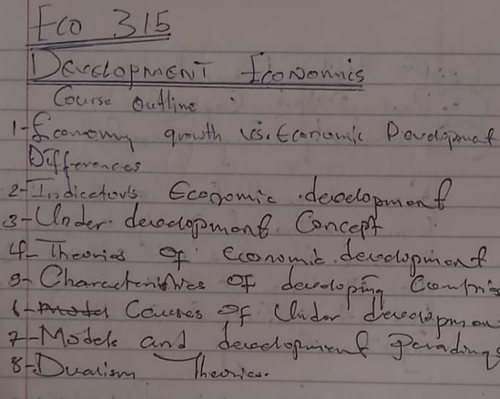 Eco 315
Development Economics
Course outline
1- Economy growth vs. Economic Development
Differences
2- Indicators Economic development
3- Under development Concept
4- Theories of economic development
5- Characteristics of developing
6- Causes of Under development
7- Models and development
8- Dualism Theories.